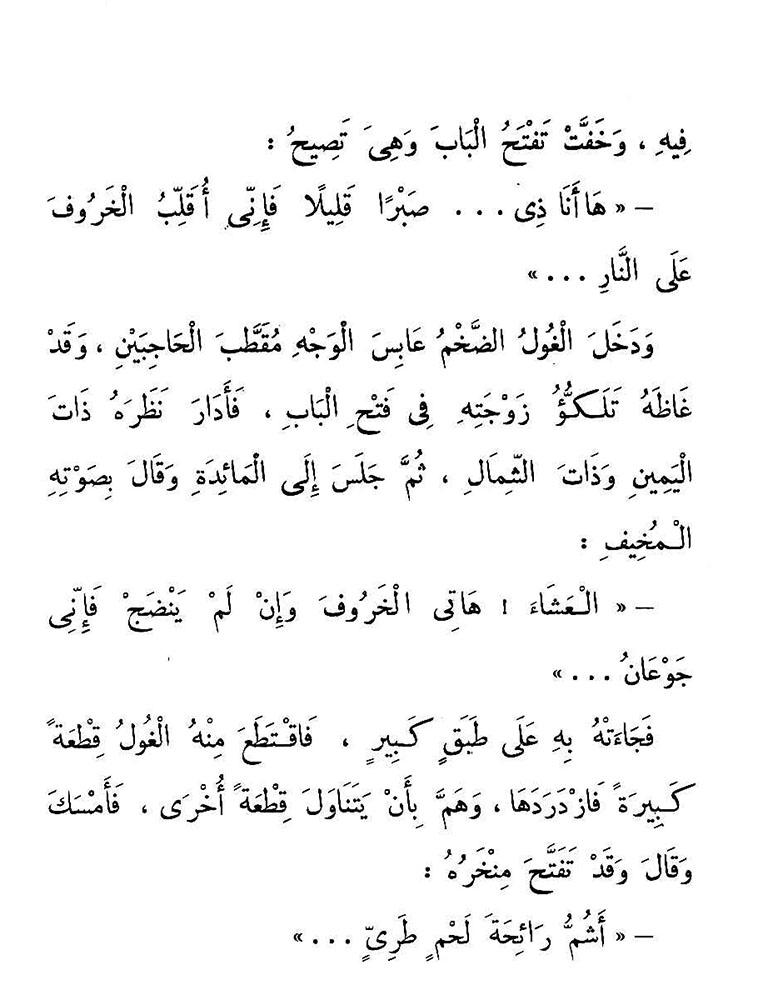 فِيهِ ، وَخَفَّتْ تَفْتَحُ الْبَابَ وَهِىَ تَصِيحُ :
– « هَاأَنَا ذِى ... صَبْرًا قَلِيلًا فَإِنِّى أُقَلِّبُ الْخَرُوفَ
عَلَى النَّارِ ... »
وَدَخَلَ الْغُولُ الضَّخْمُ عَابِسَ الْوَجْهِ مُقَطَّبَ الْحَاجِبَيْنِ ، وَقَدْ
غَاظَهُ تَلَكُّؤُ زَوْجَتِهِ فِى فَتْحِ الْبَابِ ، فَأَدَارَ نَظَرَهُ ذَاتَ
الْيَمِينِ وَذَاتَ الشِّمَالِ ، ثُمَّ جَلَسَ إِلَى الْمَائِدَةِ وَقَالَ بِصَوْتِهِ
الْمُخِيفِ :
– « الْعَشَاءَ ! هَاتِى الْخَرُوفَ وَإِنْ لَمْ يَنْضَجْ فَإِنِّى
جَوْعَانُ ... »
فَجَاءَتْهُ بِهِ عَلَى طَبَقٍ كَبِيرٍ ، فَاقْتَطَعَ مِنْهُ الْغُولُ قِطْعَةً
كَبِيرَةً فَازْدَرَدَهَا ، وَهَمَّ بِأَنْ يَتَنَاوَلَ قِطْعَةً أُخْرَى ، فَأَمْسَكَ
وَقَالَ وَقَدْ تَفَتَّحَ مِنْخَرُهُ :
– « أَشُمُّ رَائِحَةَ لَحْمٍ طَرِىٍّ ... »